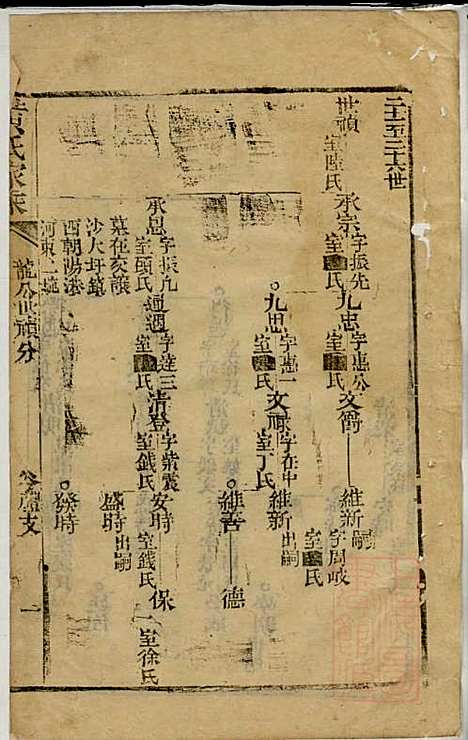 二十至三十六世
世禎
室陸氏
承宗 字振先
室氏
九忠 字惠公
室氏
文爵
維新 嗣
字周岐
室氏
九思 字惠一
室氏
文祿 字在中
室丁氏
維新 出嗣
維善
德
承恩 字振九
室顧氏
通週 字達三
室氏
清登 字紫宸
室錢氏
安時
室錢氏
保一
室徐氏
墓在亥讓
沙大圩鎮
西朝陽港
河東二號
盛時 出嗣
發時
氏家乘
龍公世禎分
蘆支
一